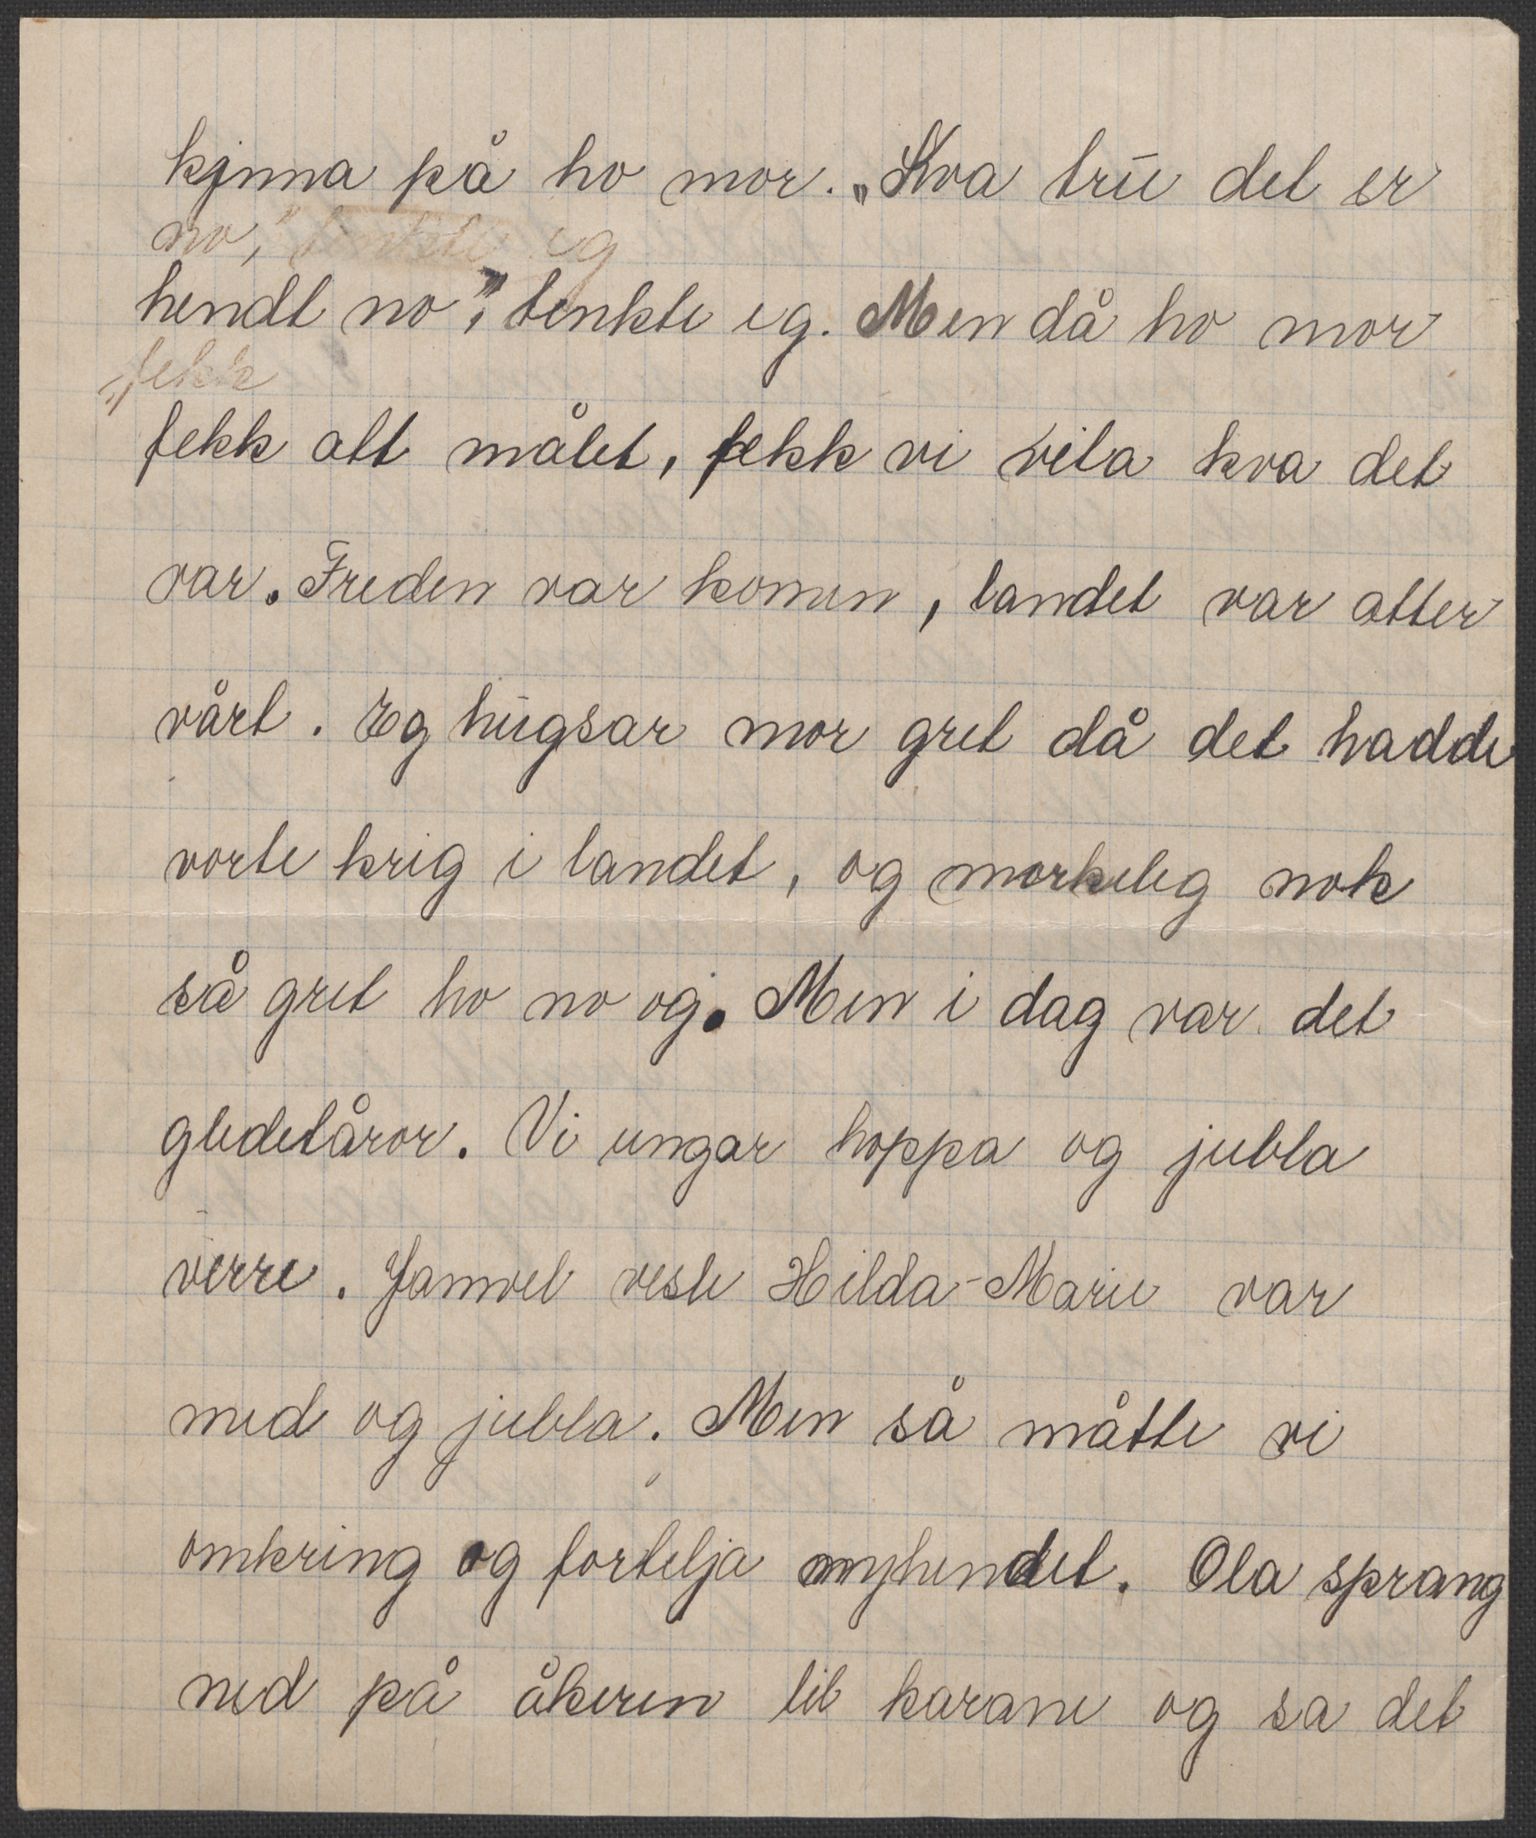 kjnna på ho mor. „Kva trū det er
no," tenkte eg
hendt no", tenkte eg. Men då ho mor
„fekk
fekk att målet, fekk vi vita kva det
var. Freden var komen, landet var atter
vårt. Eg hūgsar mor gret då det hadde
vorte krig i landet, og merkeleg nok
så gret ho no og. Men i dag var det
gledetåror. Vi ungar hoppa og jubla
verre. Jamvel vesle Hilda-Marie var
med og jubla. Men så måtte vi
omkring og fortelja nyhendet. Ola sprang
ned på åkeren til karane og sa det